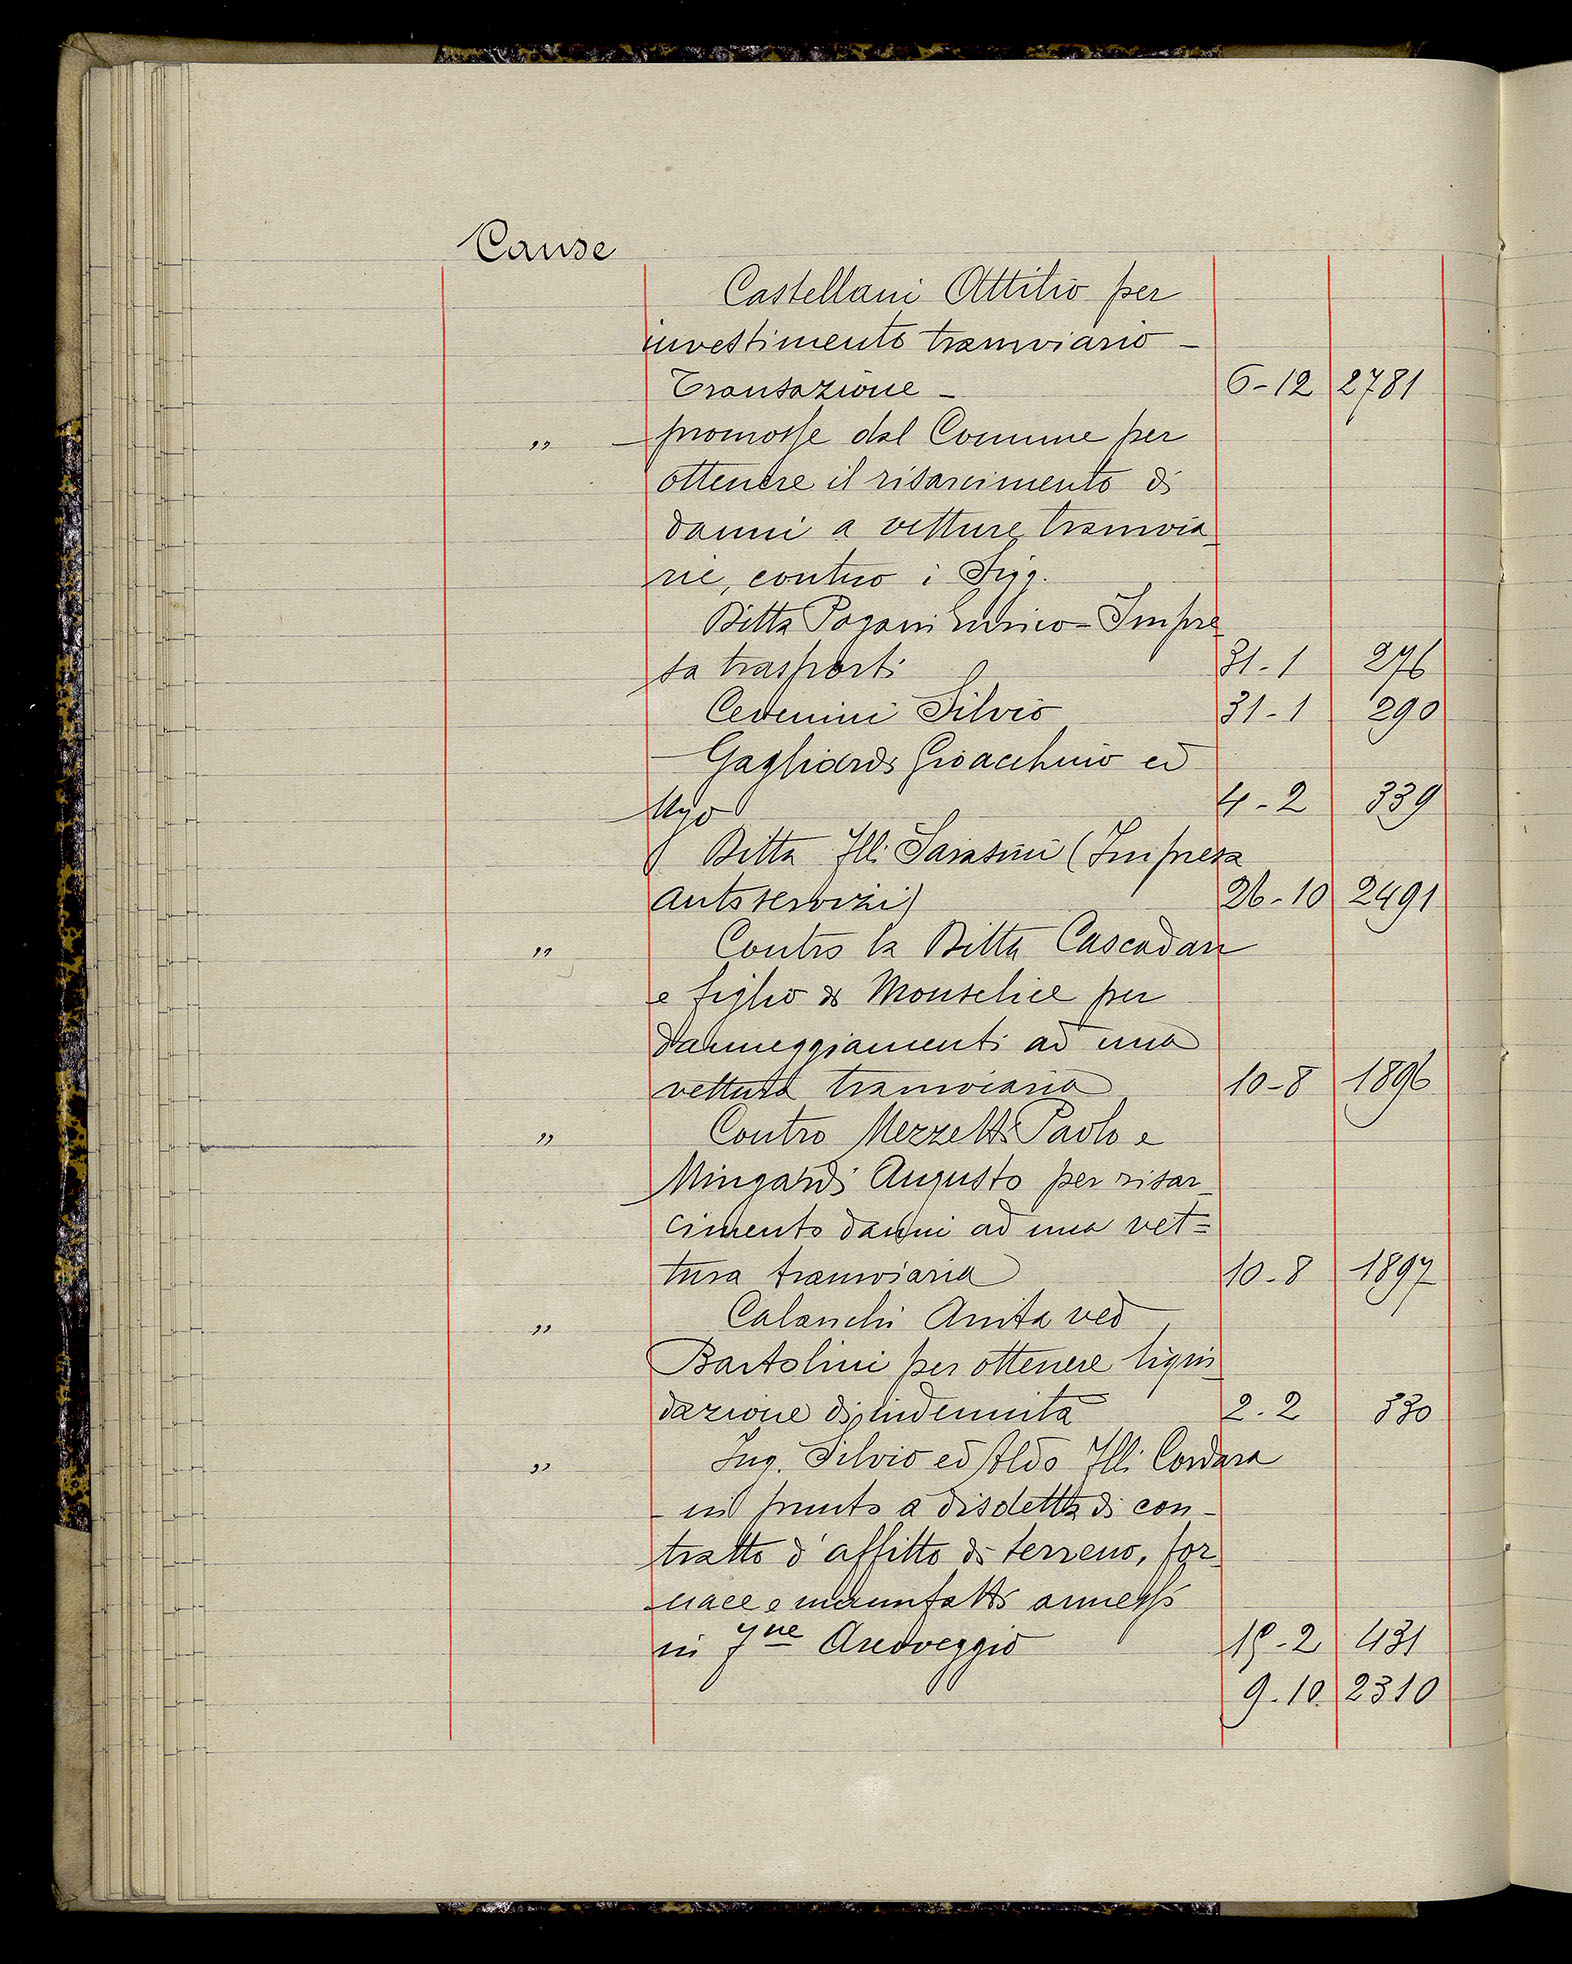 Cause
Castellani Attilio per
investimento tramviario -
Transazione - 6-12 2781
" promosse dal Comune per
ottenere il risarcimento di
danni a vetture tramvia-
rie, contro i Sigg.
Ditta Pagani Enrico - Impre
sa trasporti 31-1 276
Cevenini Silvio 31-1 290
Gagliardi Gioacchino ed
Ugo 4-2 339
Ditta Flli Sarasini (Impresa
autoservizi) 26-10 2491
" Contro la Ditta Cascadan
e figlio di Monselice per
danneggiamenti ad una
vettura tramviaria 10-8 1896
" Contro Mezzetti Paolo e
Mingardi Augusto per risar-
cimento danni ad una vet=
tura tramviaria 10-8 1897
" Calanchi Anita ved
Bartolini per ottenere liqui-
dazione di indennità 2-2 330
" Ing. Silvio ed Aldo Flli Cordara
in punto a disdetta di con-
tratto d'affitto di terreno, for-
nace e manufatti annessi
in 7ne Arcoveggio 15-2 431
9-10. 2310